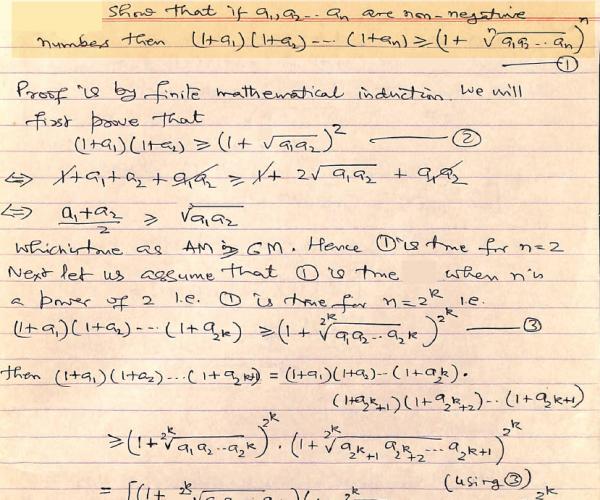 Show that if a₁, a₂ ... aₙ are non-negative
numbers then (1+a₁)(1+a₂) ---- (1+aₙ) ≥ (1 + ⁿ√(a₁a₂...aₙ))ⁿ
①
Proof is by finite mathematical induction. We will
first prove that
(1+a₁)(1+a₂) ≥ (1 + √(a₁a₂))² ②
⇔ 1 + a₁ + a₂ + a₁a₂ ≥ 1 + 2√(a₁a₂) + a₁a₂
⇔ (a₁+a₂)/2 ≥ √(a₁a₂)
which is true as AM ≥ GM. Hence ① is true for n=2
Next let us assume that ① is true when n is
a power of 2 i.e. ① is true for n = 2ᵏ i.e.
(1+a₁)(1+a₂) ---- (1+a_{2^k}) ≥ (1 + ^{2^k}√(a₁a₂...a_{2^k}))^{2^k} ③
then (1+a₁)(1+a₂) ... (1+a_{2^{k+1}}) = (1+a₁)(1+a₂)--(1+a_{2^k}).
(1+a_{2^k+1})(1+a_{2^k+2})...(1+a_{2^{k+1}})
≥ (1 + ^{2^k}√(a₁a₂...a_{2^k}))^{2^k} . (1 + ^{2^k}√(a_{2^k+1} a_{2^k+2}...a_{2^{k+1}}))^{2^k}
(using ③)
= [(1+ ^{2^k}√